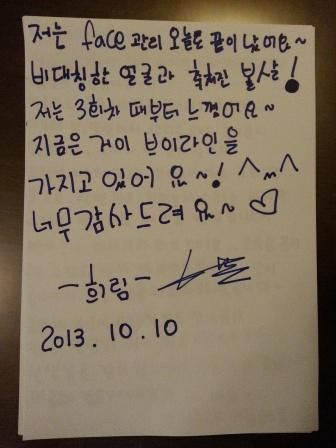 저는 face 관리 오늘도 끝이 났어요~
비대칭한 얼굴과 축쳐진 볼살!
저는 3회차 때부터 느꼈어요~
지금은 거이 브이라인을
가지고 있어 요~! ^m^
너무감사드려 요~ ♡
- 희림 -
2013. 10. 10